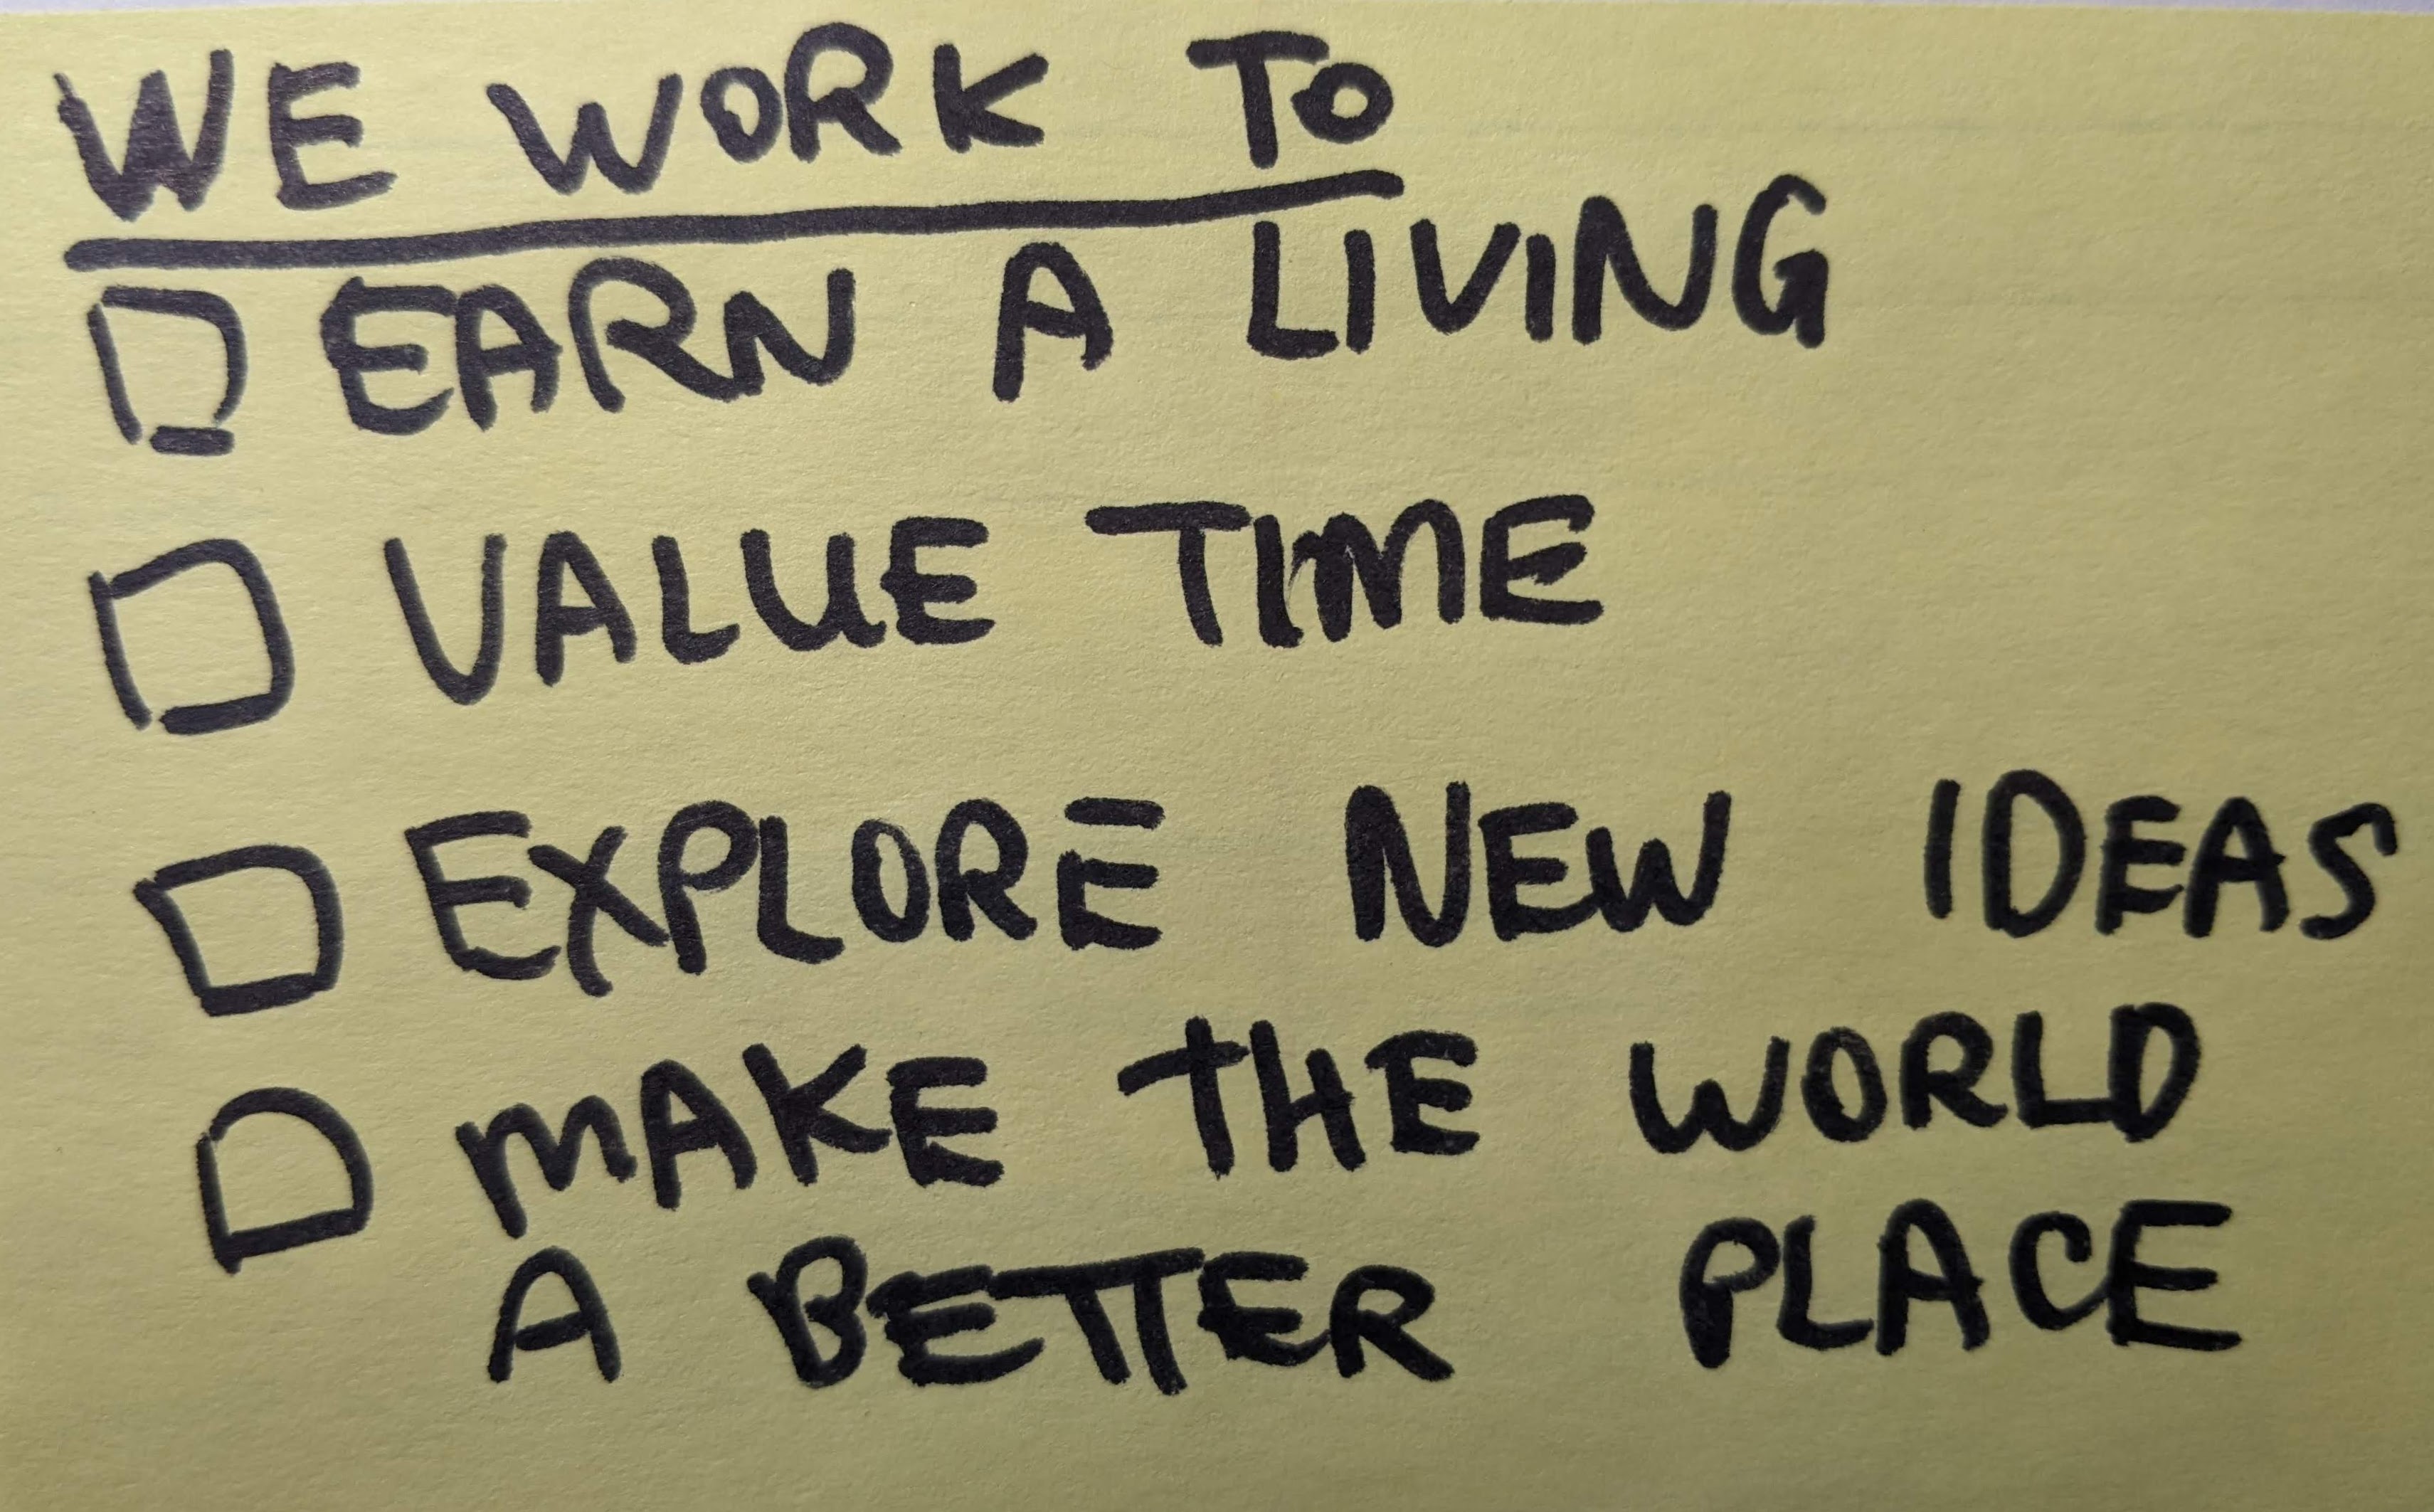 WE WORK TO
EARN A LIVING
VALUE TIME
EXPLORE NEW IDEAS
MAKE THE WORLD
A BETTER PLACE